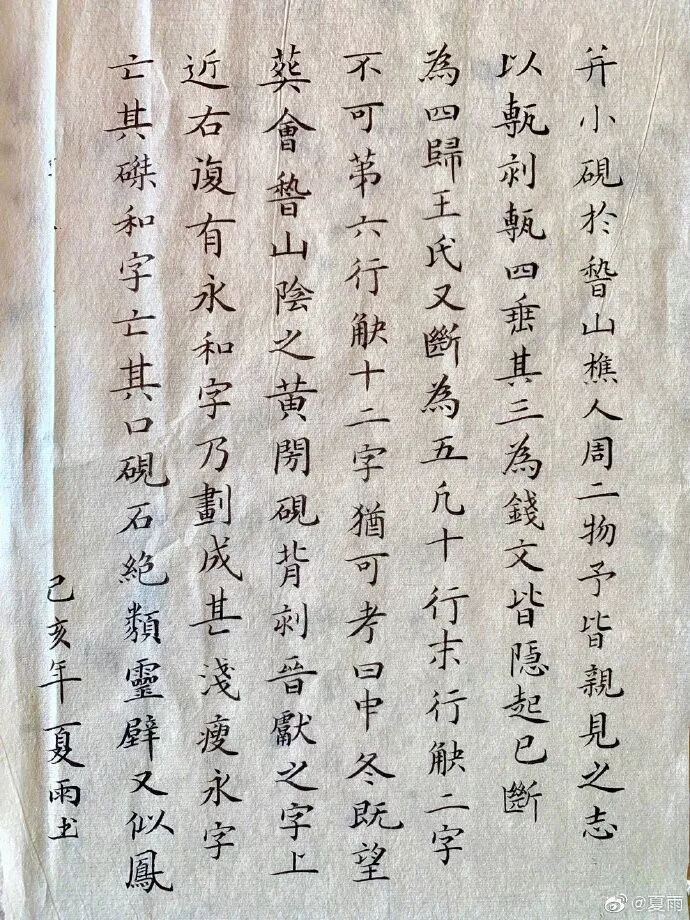 并小硯於嵇山樵人周二物予皆親見之志
以甎刻甎四垂其三為錢文皆隱起已斷
為四歸王氏又斷為五凡十行末行觖二字
不可第六行觖十二字猶可考曰中冬既望
葬會嵇山陰之黃閍硯背刻晉獻之字上
近右復有永和字乃劃成甚淺瘦永字
亡其磔和字亡其口硯石絕類靈壁又似鳳
己亥年夏雨书
@夏雨